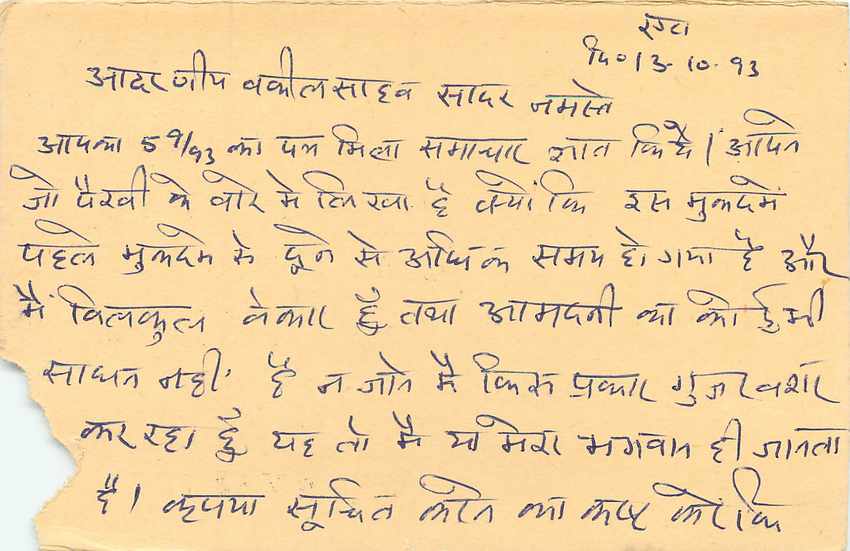 एटा
दि० 13-10-93
आदरणीय वकील साहब सादर नमस्ते
आपका 5 9/93 का पत्र मिला समाचार ज्ञात किये। आपने
जो पैरवी के बारे मे लिखा है क्योंकि इस मुकदमें
पहले मुकदमे के दूने से अधिक समय हो गया है और
मैं विलकुल वेकार हूँ तथा आमदनी का कोई भी
साधन नहीं है न जाने मै किस प्रकार गुजर वशर
कर रहा हूँ यह तो मै या मेरा भगवान ही जानता
है। कृपया सूचित करने का कष्ट करें कि